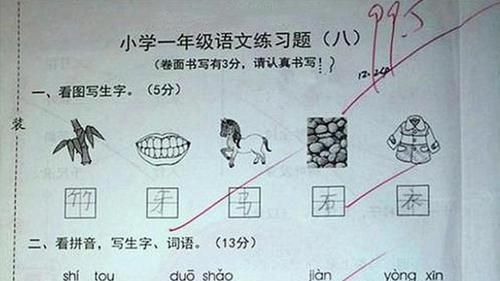 小学一年级语文练习题（八）
99.5
（卷面书写有3分，请认真书写！）
12.24
一、看图写生字。（5分）
装
竹 牙 马 石 衣
二、看拼音，写生字、词语。（13分）
shí tou duō shǎo jiàn yòng xīn